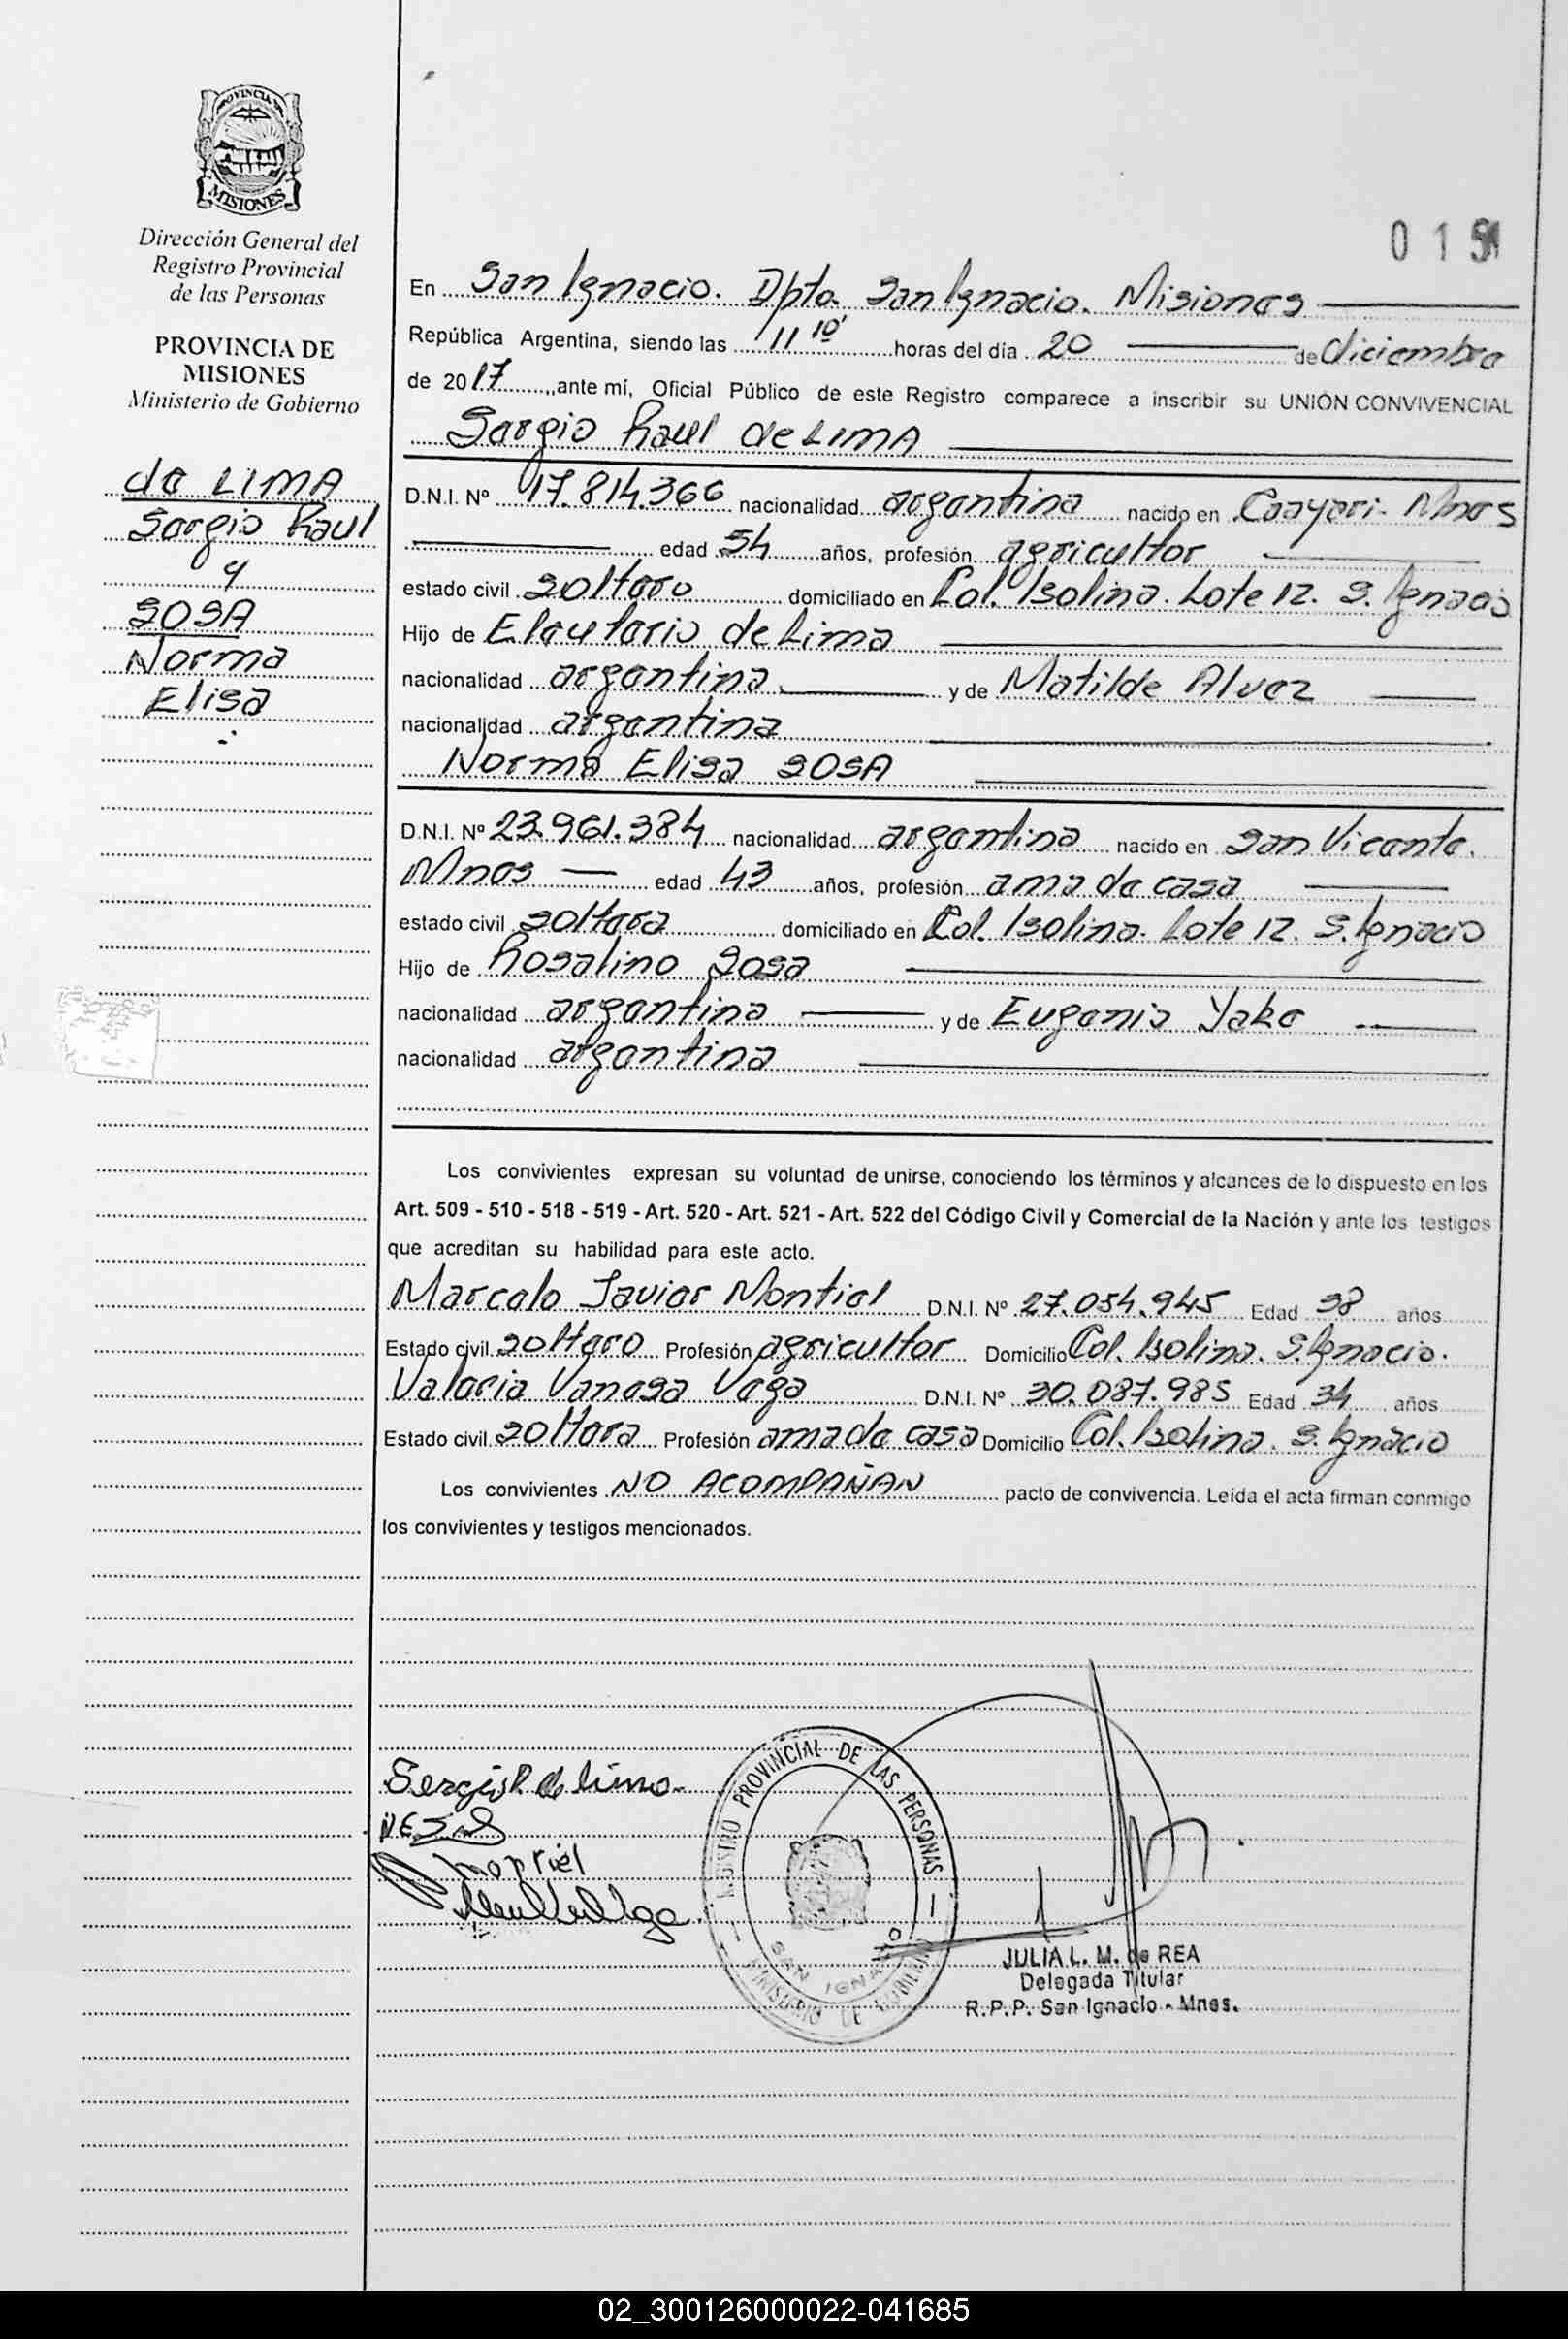 PROVINCIA DE
MISIONES
Dirección General del
Registro Provincial
de las Personas
PROVINCIA DE
MISIONES
Ministerio de Gobierno
de LIMA
Sergio Raul
y
SOSA
Norma
Elisa
En San Ignacio. Dpto. San Ignacio. Misiones
República Argentina, siendo las 11 10' horas del día 20 de diciembre
de 2017 ante mí, Oficial Público de este Registro comparece a inscribir su UNIÓN CONVIVENCIAL
Sergio Raul de LIMA
D.N.I. Nº 17.814.366 nacionalidad argentina nacido en Mnes
edad 54 años, profesión agricultor
estado civil soltero domiciliado en Col. Isolina. Lote 12. S. Ignacio
Hijo de Eleuterio de Lima
nacionalidad argentina y de Matilde Alvez
nacionalidad argentina
Norma Elisa SOSA
D.N.I. Nº 23.961.384 nacionalidad argentina nacido en San Vicente.
Mnes edad 43 años, profesión ama de casa
estado civil soltera domiciliado en Col. Isolina. Lote 12. S. Ignacio
Hijo de Rosalino Sosa
nacionalidad argentina y de Eugenia Yake
nacionalidad argentina
Los convivientes expresan su voluntad de unirse, conociendo los términos y alcances de lo dispuesto en los
Art. 509 - 510 - 518 - 519 - Art. 520 - Art. 521 - Art. 522 del Código Civil y Comercial de la Nación y ante los testigos
que acreditan su habilidad para este acto.
Marcelo Javier Montiel D.N.I. Nº 27.054.945 Edad 38 años
Estado civil soltero Profesión agricultor Domicilio Col. Isolina. S. Ignacio.
Valeria Vanesa Vega D.N.I. Nº 30.087.985 Edad 34 años
Estado civil soltera Profesión ama de casa Domicilio Col. Isolina. S. Ignacio
Los convivientes NO ACOMPAÑAN pacto de convivencia. Leída el acta firman conmigo
los convivientes y testigos mencionados.
Sergio R de lima
REGISTRO PROVINCIAL DE LAS PERSONAS
SAN IGNACIO
MINISTERIO DE GOBIERNO
JULIA L. M. de REA
Delegada Titular
R.P.P. San Ignacio - Mnes.
02_300126000022-041685